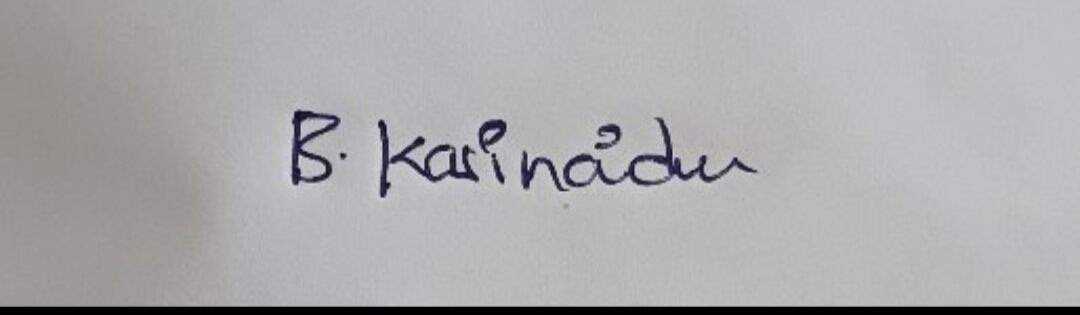 B. Kasinadu